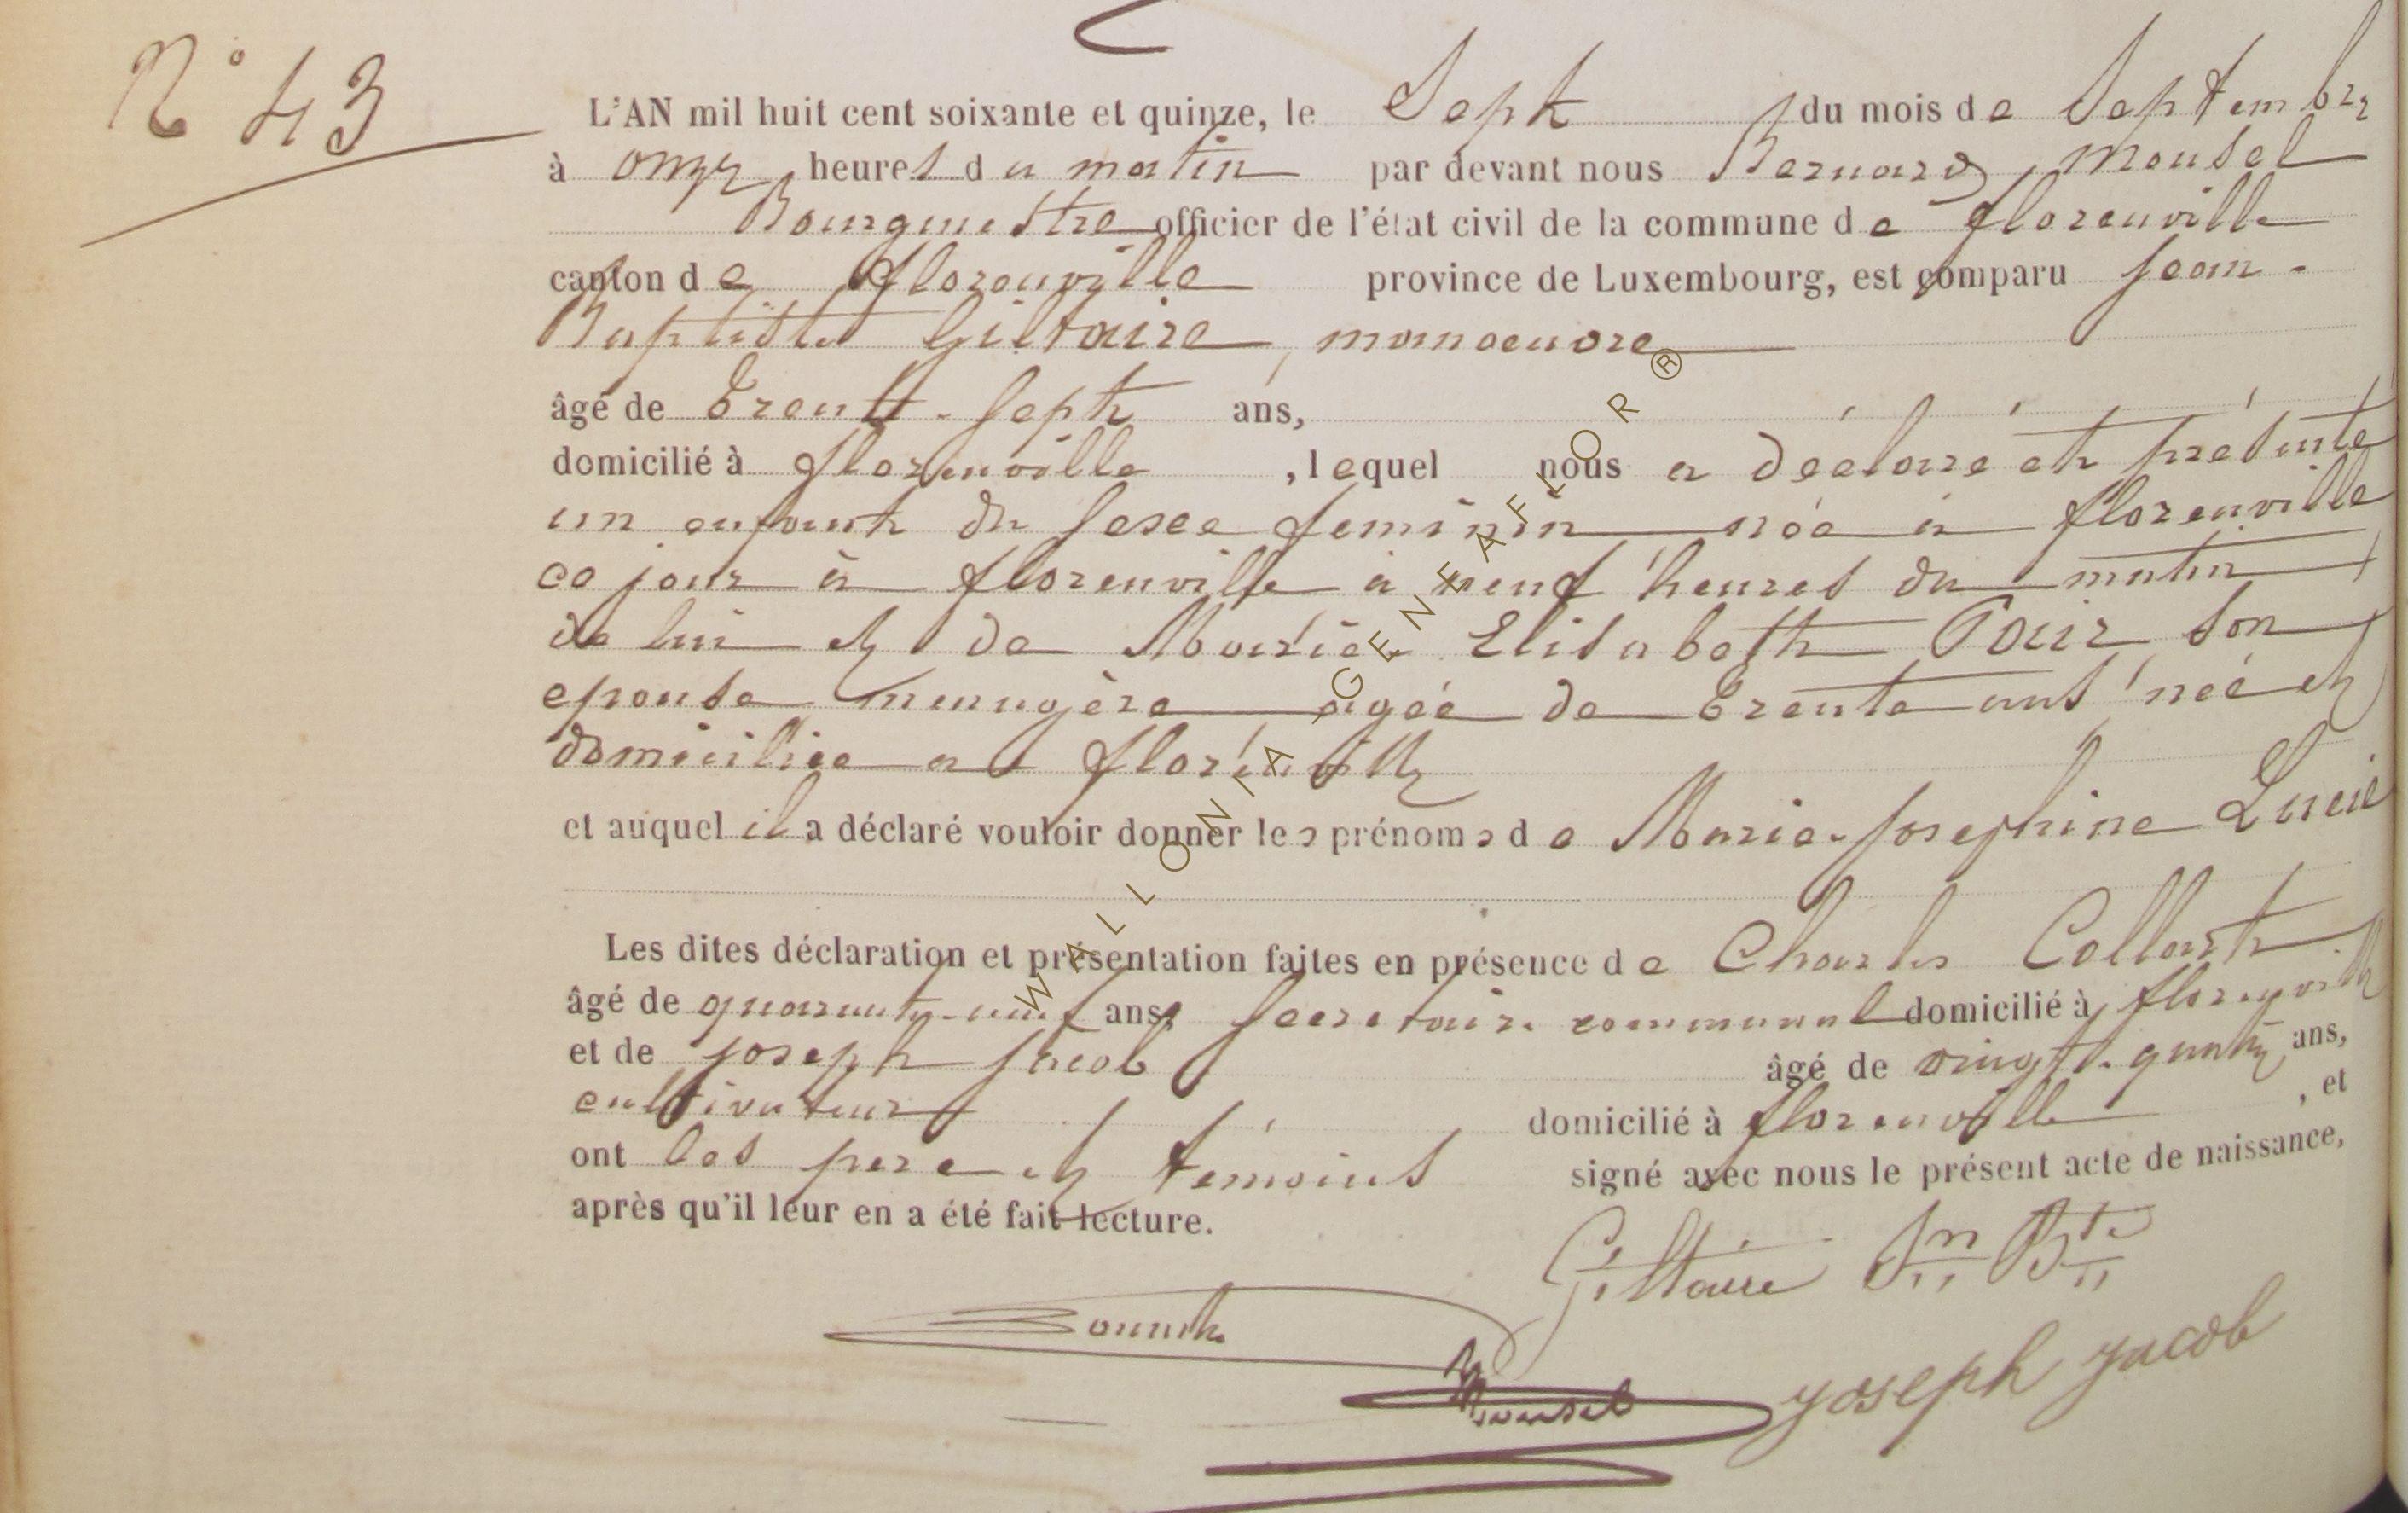 N° 43
L'AN mil huit cent soixante et quinze, le Sept du mois de Septembre
à onze heures du matin par devant nous Bernard, Mousel
Bourgmestre officier de l'état civil de la commune de florenville
canton de florenville province de Luxembourg, est comparu Jean-
Baptiste Giltaire, manoeuvre
âgé de trente-Sept ans,
domicilié à florenville, lequel nous a déclaré et présenté
un enfant du Sexe feminin née à florenville
ce jour à florenville à neuf heures du matin
de lui et de Marie Elisabeth Poir son
epouse menagère agée de trente ans née et
domiciliée a florenville
et auquel il a déclaré vouloir donner les prénoms de Marie-Josephine Lucie
Les dites déclaration et présentation faites en présence de Charles Collart
âgé de quarante-neuf ans, Secretaire communal domicilié à florenville
et de joseph jacob âgé de vingt-quatre ans,
cultivateur domicilié à florenville, et
ont les pere et témoins signé avec nous le présent acte de naissance,
après qu'il leur en a été fait lecture.
Giltaire Jn Bte
Mousel joseph jacob
WALLONIA GENEAFLOR ®